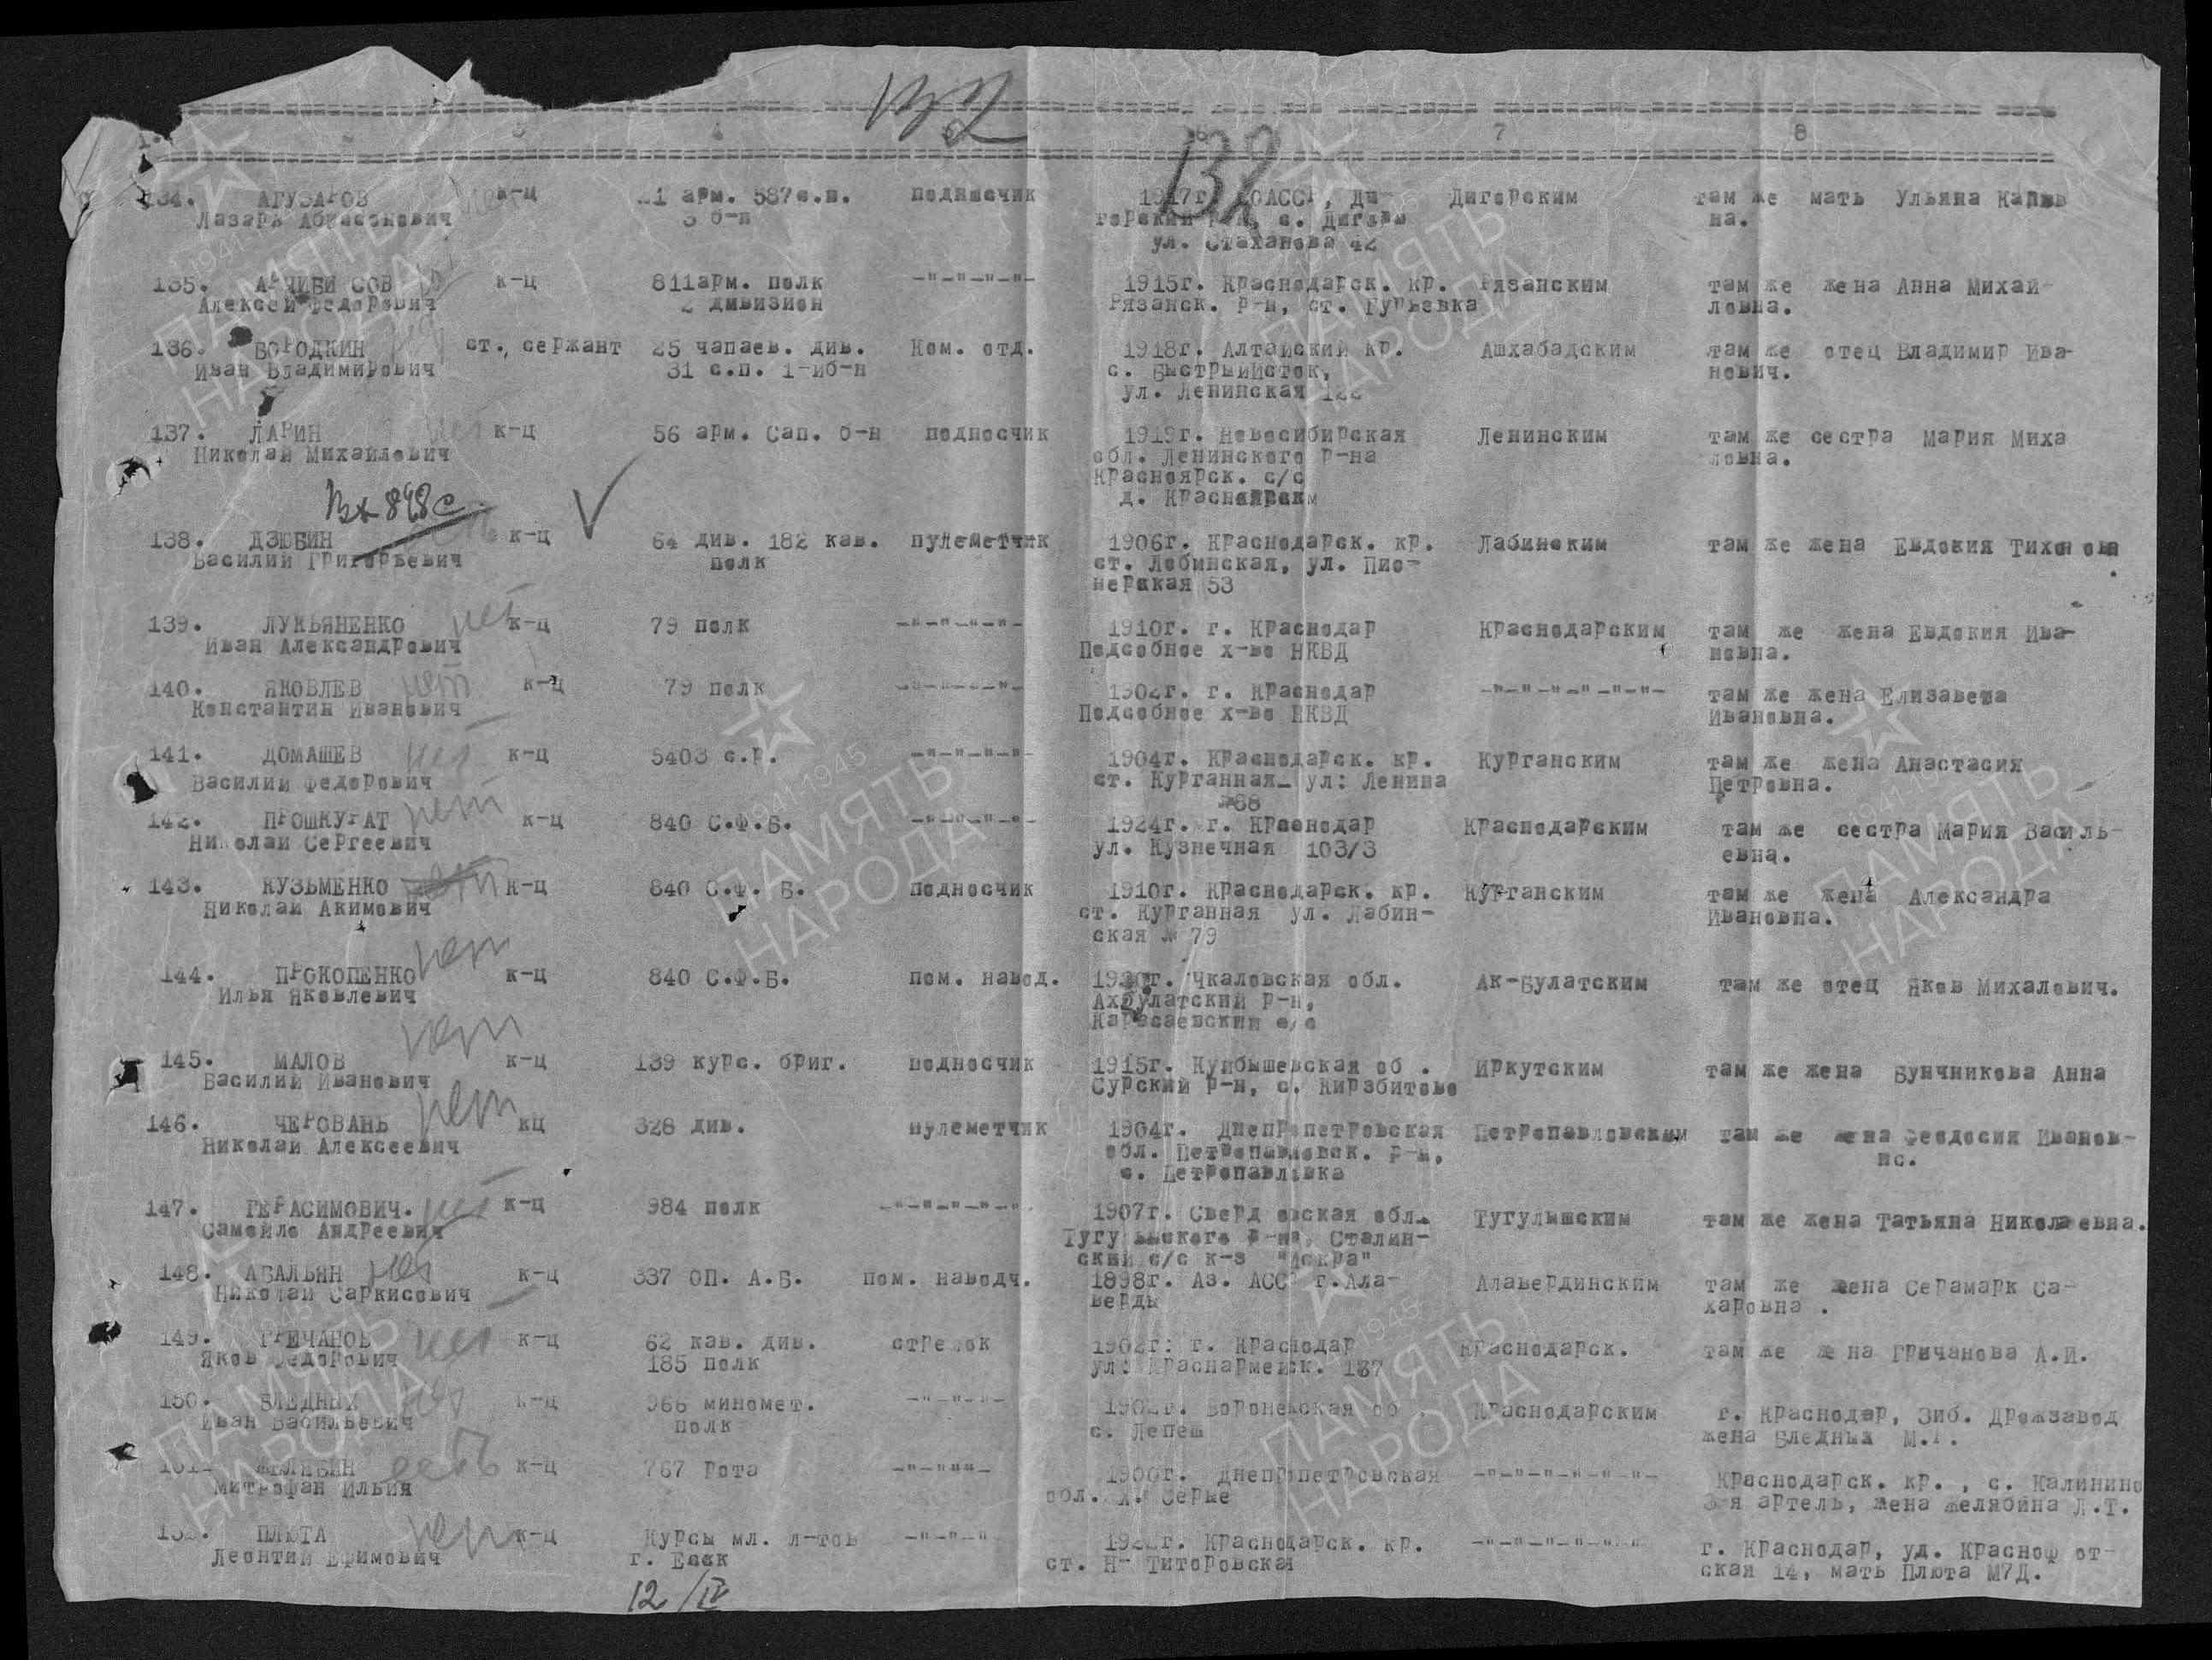 132
7 8
134. АГУЗАРОВ к-ц 21 арм. 587с.п. подносчик 1917г. ОАССР, Ди- Дигорским там же мать Ульяна
Лазарь 3 б-н горский с. Дигора на.
ул. Стаханова 42
135. к-ц 811арм. полк -"-"-"-"- 1915г. Краснодарск. кр. Рязанским там же жена Анна Михай-
Алексей Федорович 2 дивизион Рязанск. р-н, ст. Гурьевка ловна.
136. БОРОДКИН ст. сержант 25 чапаев. див. Ком. отд. 1918г. Алтайский кр. Ашхабадским там же отец Владимир Ива-
Иван Владимирович 31 с.п. 1-йб-н с. Быстрыйисток, нович.
ул. Ленинская 122
137. ЛАРИН нет к-ц 56 арм. Сап. б-н подносчик 1919г. Новосибирская Ленинским там же сестра Мария Миха
Николай Михайлович обл. Ленинского р-на ловна.
Красноярск. с/с
д.
138. ДЗЮБИН к-ц 64 див. 182 кав. пулеметчик 1906г. Краснодарск. кр. Лабинским там же жена Евдокия Тихоновн
Василий Григорьевич полк ст. Лабинская, ул. Пио-
нерская 53
139. ЛУКЬЯНЕНКО нет к-ц 79 полк -"-"-"-"- 1910г. г. Краснодар Краснодарским там же жена Евдокия Ива-
Иван Александрович Подсобное х-во НКВД новна.
140. ЯКОВЛЕВ нет к-ц 79 полк -"-"-"-"- 1902г. г. Краснодар -"-"-"-"-"-"- там же жена Елизавета
Константин Иванович Подсобное х-во НКВД Ивановна.
141. ДОМАШЕВ нет к-ц 5403 с.р. -"-"-"-"- 1904г. Краснодарск. кр. Курганским там же жена Анастасия
Василий Федорович ст. Курганная ул: Ленина Петровна.
№68
142. ПРОШКУРАТ нет к-ц 840 С.Ф.Б. -"-"-"-"- 1924г. г. Краснодар Краснодарским там же сестра Мария Василь-
Николай Сергеевич ул. Кузнечная 103/3 евна.
143. КУЗЬМЕНКО нет к-ц 840 С.Ф. Б. подносчик 1910г. Краснодарск. кр. Курганским там же жена Александра
Николай Акимович ст. Курганная ул. Лабин- Ивановна.
ская № 79
144. ПРОКОПЕНКО нет к-ц 840 С.Ф.Б. пом. навод. Чкаловская обл. Ак-Булатским там же отец Яков Михалович.
Илья Яковлевич Акбулатский р-н,
Карасаевский с/с
145. МАЛОВ нет к-ц 139 курс. бриг. подносчик 1915г. Куйбышевская об . Иркутским там же жена Бунчникова Анна
Василий Иванович Сурский р-н, с. Кирзбитово
146. ЧЕРОВАНЬ нет кц 328 див. пулеметчик 1904г. Днепропетровская Петропавловским там же жена Феодосия Иванов-
Николай Алексеевич обл. Петропавловск. р-н, нс.
с. Петропавловка
147. ГЕРАСИМОВИЧ. нет к-ц 984 полк -"-"-"-"-"- 1907г. Сверд овская обл. Тугулымским там же жена Татьяна Николаевна.
Самойло Андреевич Тугу ымского р-на, Сталин-
ский с/с к-з "Искра"
148. АБАЛЬЯН нет к-ц 337 ОП. А.Б. пом. наводч. 1898г. Аз. АССР г.Ала- Алавердинским там же жена Серамарк Са-
Николай Саркисович верды харовна .
149. ГРЕЧАНОВ нет к-ц 62 кав. див. стрелок 1902г: г. Краснодар Краснодарск. там же жена Гричанова А.И.
Яков Федорович 185 полк ул: Краснармейск. 137
150. БЛЕДНЫХ нет к-ц 966 миномет. -"-"-"- Воронежская об Краснодарским г. Краснодар, Зиб. Дрожзавод
Иван Васильевич полк с. Лепеш жена Бледных М.
151. есть к-ц 767 Рота 1900г. Днепропетровская -"-"-"-"-"-"- Краснодарск. кр. , с. Калинино
Митрофан Ильия обл. 3-я артель, жена Желябина Л.Т.
152. ПЛЮТА нет к-ц Курсы мл. л-тов -"-"-"- Краснодарск. кр. -"-"-"-"-"-"- г. Краснодар, уд. Красноф от-
Леонтий Ефимович г. Ейск ст. Н- Титоровская ская 14, мать Плюта М7Д.
12/IV